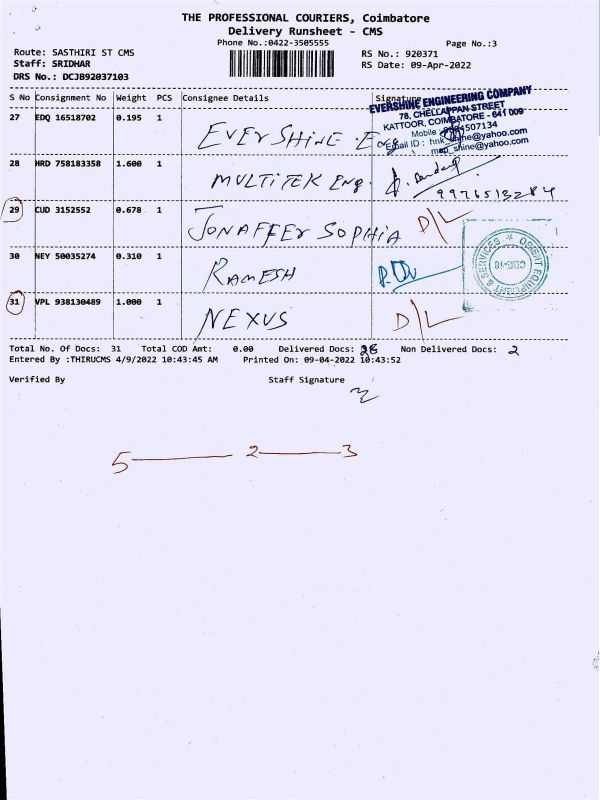 THE PROFESSIONAL COURIERS, Coimbatore
Delivery Runsheet - CMS
Phone No.:0422-3505555
Page No.:3
Route: SASTHIRI ST CMS
Staff: SRIDHAR
DRS No.: DCJB92037103
RS No.: 920371
RS Date: 09-Apr-2022
S No Consignment No Weight PCS Consignee Details Signature
EVERSHINE ENGINEERING COMPANY
78, CHELLAPPAN STREET
KATTOOR, COIMBATORE - 641 009
Mobile 4507134
Email ID : hnk_shine@yahoo.com
shine@yahoo.com
27 EDQ 16518702 0.195 1 EVERSHINE. Eng
28 HRD 758183358 1.600 1 MULTITEK Eng.
9976513284
29 CUD 3152552 0.678 1 JONAFFER SOPHIA D/L
30 NEY 50035274 0.310 1 RAMESH
ORIENT EQUIPMENT & SERVICES
CBE-18
31 VPL 938130489 1.000 1 NEXUS D/L
Total No. Of Docs: 31 Total COD Amt: 0.00 Delivered Docs: 28 Non Delivered Docs: 2
Entered By :THIRUCMS 4/9/2022 10:43:45 AM Printed On: 09-04-2022 10:43:52
Verified By Staff Signature
5 — 2 — 3